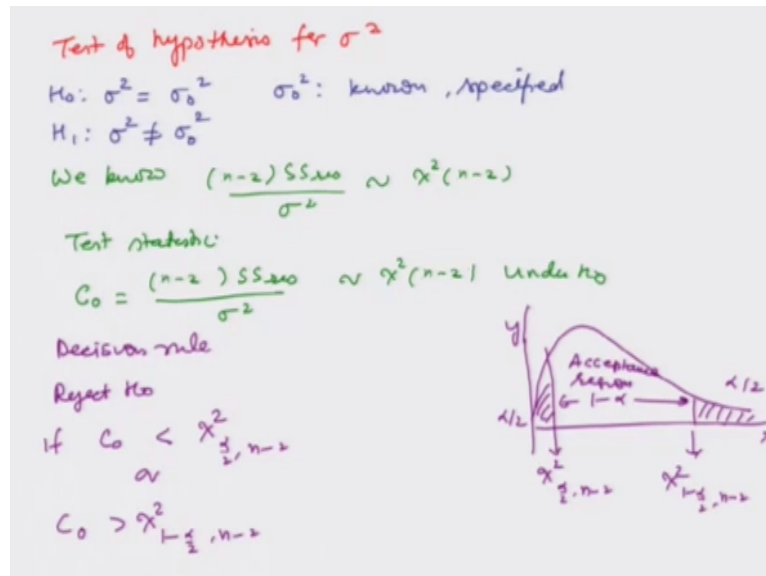 Test of hypothesis for σ²
H₀: σ² = σ₀² σ₀²: known, specified
H₁: σ² ≠ σ₀²
We know (n-2) SSres / σ² ~ χ²(n-2)
Test statistic:
C₀ = (n-2) SSres / σ² ~ χ²(n-2) under H₀
Decision rule
Reject H₀
If C₀ < χ² α/2, n-2
or
C₀ > χ² 1-α/2, n-2
y
Acceptance
region
α/2
1-α
α/2
χ² α/2, n-2
χ² 1-α/2, n-2